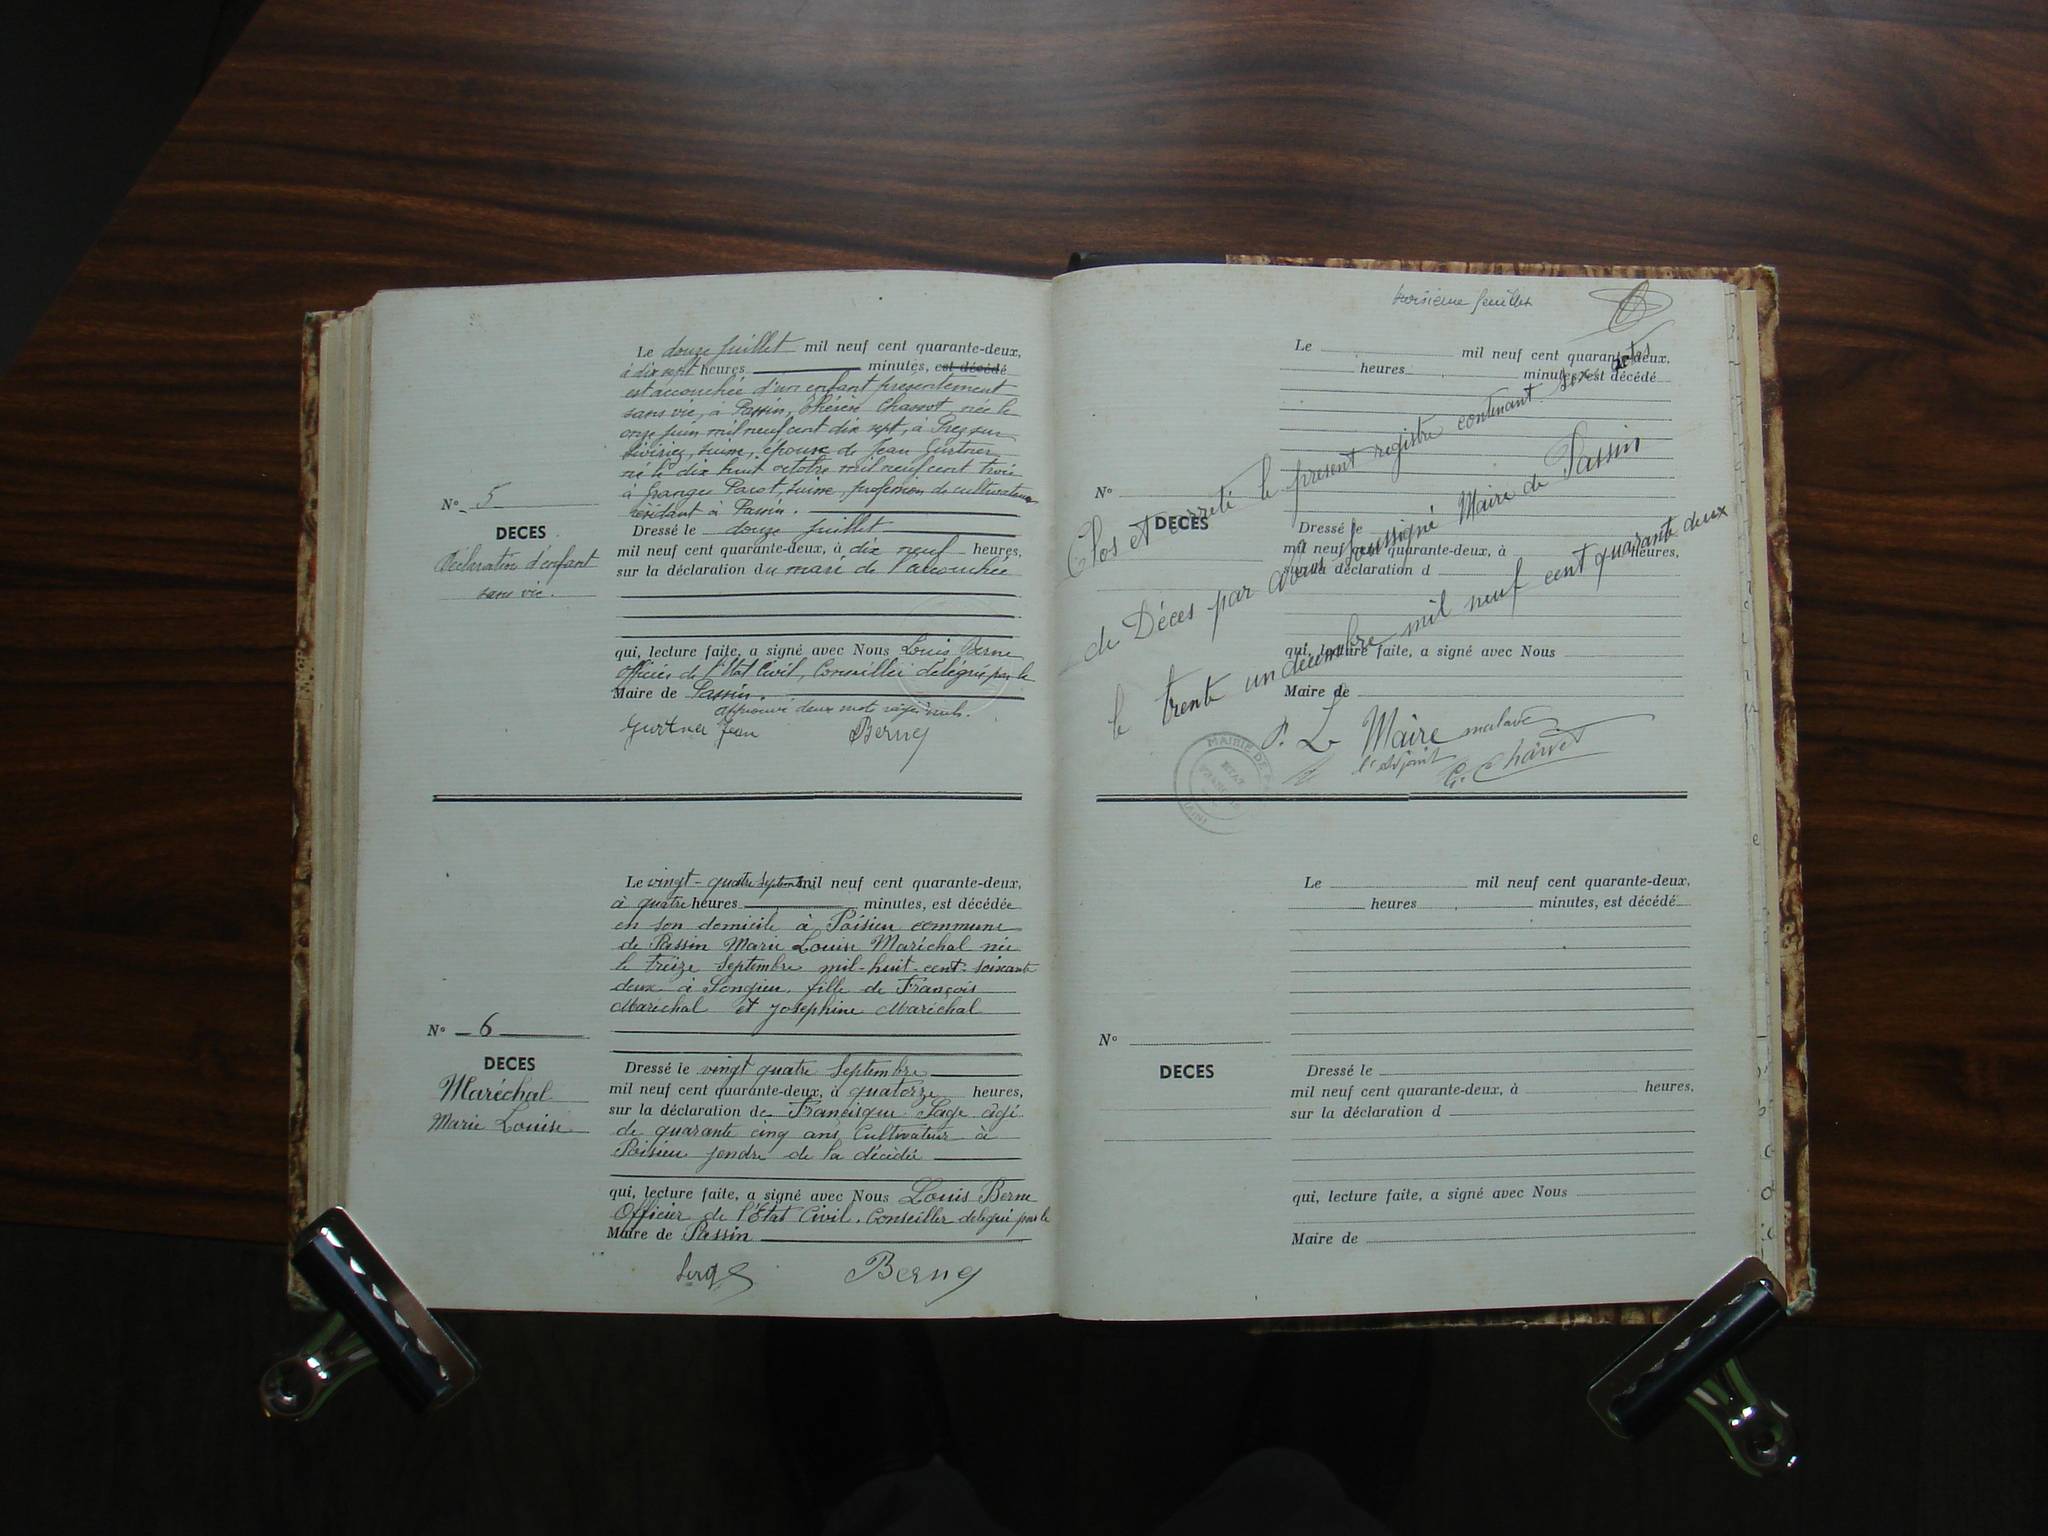 Le douze juillet mil neuf cent quarante-deux,
à dix sept heures minutes, est décédé
est accouchée d'un enfant présentement
sans vie, à Passin, Thérèse Chassot, née le
onze juin mil neuf cent dix sept, à
Suisse, épouse de Jean Gurtner
né le dix huit octobre mil neuf cent trois
à Granges Pacot, Suisse, profession de cultivateur
résidant à Passin.
N° 5
DECES
Déclaration d'enfant
sans vie.
Dressé le douze juillet
mil neuf cent quarante-deux, à dix neuf heures,
sur la déclaration du mari de l'accouchée
qui, lecture faite, a signé avec Nous Louis Berne
Officier de l'Etat Civil, Conseiller délégué par le
Maire de Passin.
approuvé deux mots rayés nuls.
Gurtner Jean Berne
Le vingt-quatre Septembre mil neuf cent quarante-deux,
à quatre heures minutes, est décédée
en son domicile à Poisieu commune
de Passin Marie Louise Maréchal née
le treize Septembre mil-huit-cent-soixante
deux à Songieu, fille de François
Maréchal et Joséphine Maréchal
N° 6
DECES
Maréchal
Marie Louise
Dressé le vingt quatre Septembre
mil neuf cent quarante-deux, à quatorze heures,
sur la déclaration de Francisque Sage âgé
de quarante cinq ans Cultivateur à
Poisieu jendre de la décédée
qui, lecture faite, a signé avec Nous Louis Berne
Officier de l'Etat Civil, Conseiller délégué par le
Maire de Passin
Berne
troisième feuillet
Le mil neuf cent quarante-deux,
heures minutes, est décédé
N°
DECES
Dressé le
mil neuf cent quarante-deux, à heures,
sur la déclaration d
qui, lecture faite, a signé avec Nous
Maire de
Clos et arrêté le présent registre contenant six actes
de Déces par nous soussigné Maire de Passin
le trente un décembre mil neuf cent quarante deux
P. Le Maire malade
l'adjoint G. Charvet
MAIRIE DE
Le mil neuf cent quarante-deux,
heures minutes, est décédé
N°
DECES
Dressé le
mil neuf cent quarante-deux, à heures,
sur la déclaration d
qui, lecture faite, a signé avec Nous
Maire de